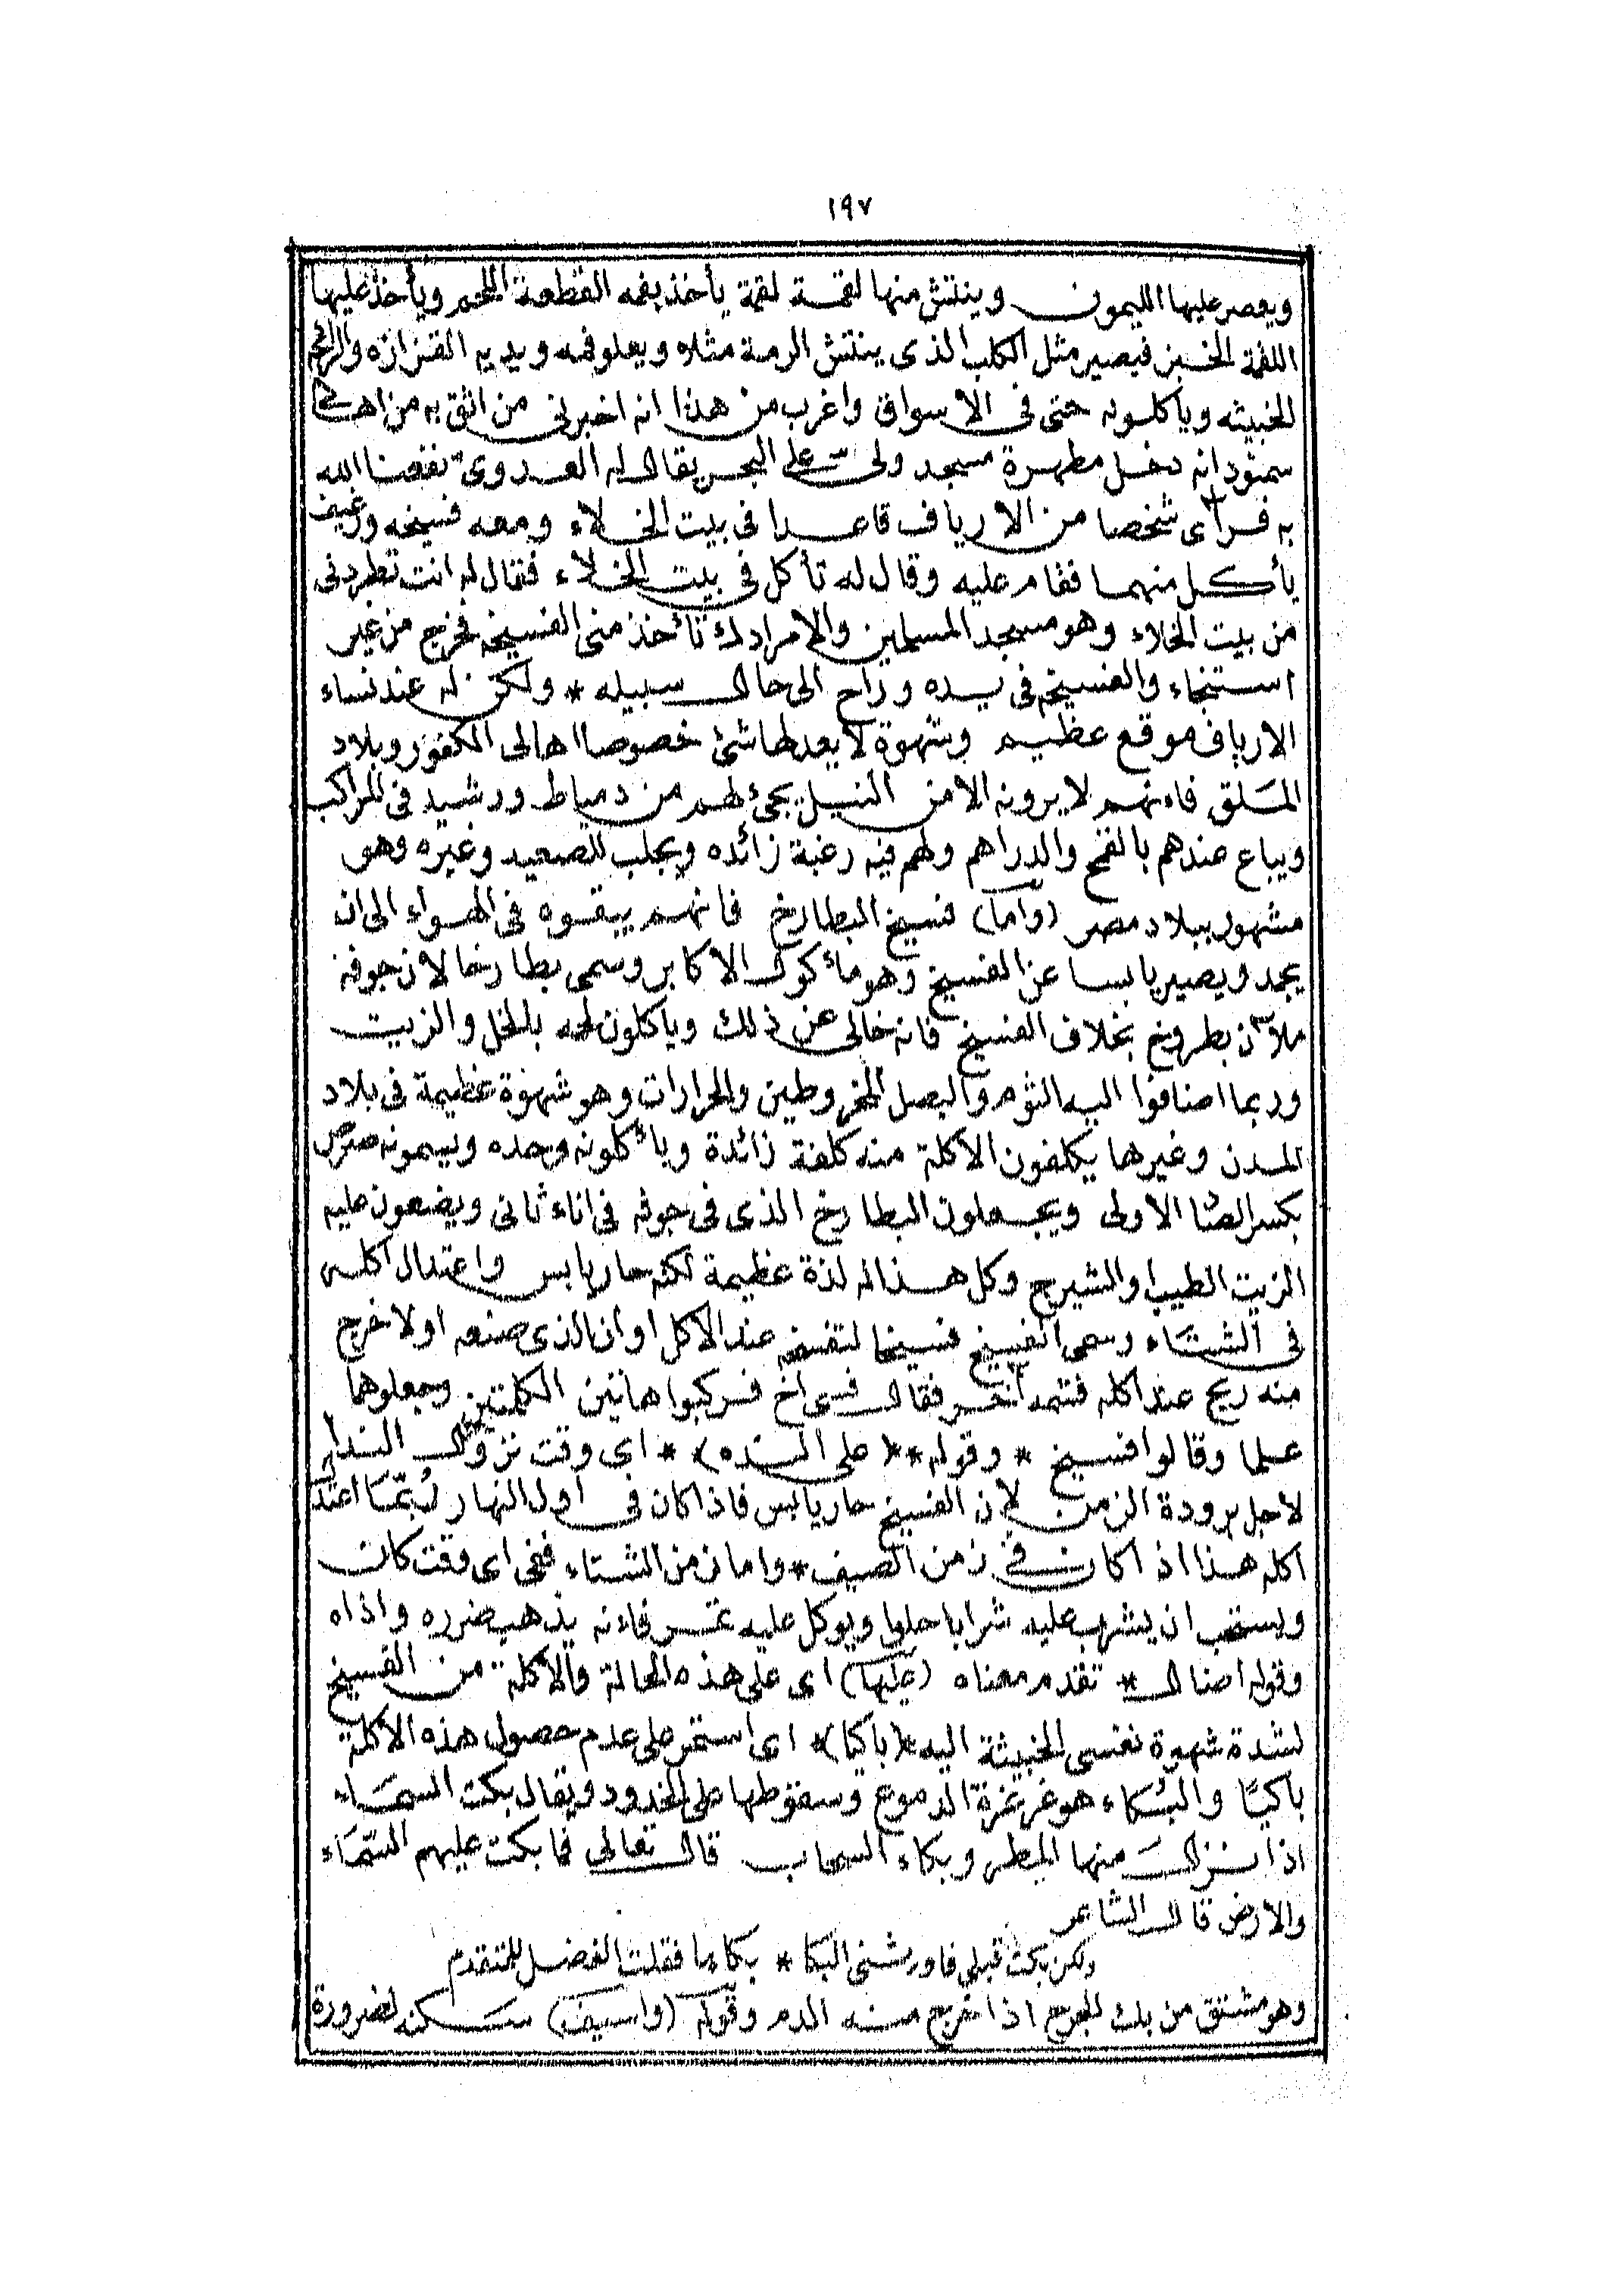 ١٩٧
ويعصر عليها الليمون وينتش منها لقمة لقمة يأخذ بفمه القطعة اللحم ويأخذ عليها
اللقمة الخبز فيصير مثل الكلب الذى ينتش الرمة مثلا ويعلو فمه ويديه القزازه والرائحه
الخبيثه ويأكلونه حتى فى الاسواق واغرب من هذا انه اخبرنى من اثق به من اهالى
سمنود انه دخل مطهرة مسجد ولى على البحر يقال له العدوى نفعنا الله
به فرأى شخصا من الارياف قاعدا فى بيت الخلاء ومعه فسيخه ورغيف
يأكل منهما فقام عليه وقال له تأكل فى بيت الخلاء فقال له انت تطردنى
من بيت الخلاء وهو مسجد المسلمين والا مرادك تأخذ منى الفسيخه فخرج من غير
استنجاء والفسيخه فى يده وراح الى حال سبيله * ولكن له عند نساء
الارياف موقع عظيم وشهوة لا يعدلها شئ خصوصا اهالى الكفور وبلاد
الملق فاءنهم لا يرونه الا من النيل يجئ لهم من دمياط ورشيد فى المراكب
ويباع عندهم بالقمح والدراهم ولهم فيه رغبة زائده ويجلب للصعيد وغيره وهو
مشهور ببلاد مصر (واما) فسيخ البطارخ فانهم يبقوه فى الهواء الى ان
يجمد ويصير يابسا عن الفسيخ وهو مأكول الاكابر وسمى بطارخا لان جوفه
ملآن بطروخ بخلاف الفسيخ فانه خالى عن ذلك وياكلون لحمه بالخل والزيت
وربما اضافوا اليه الثوم والبصل المخروطين والحرارات وهو شهوة عظيمة فى بلاد
المدن وغيرها يكلفون الاكلة منه كلفة زائدة ويأكلونه وحده ويسمونه
بكسر الصا الاولى ويجعلون البطارخ الذى فى جوفه فى اناء ثانى ويضعون عليه
الزيت الطيب او الشيرج وكل هذا له لذة عظيمة لكنه حار يابس واعتدال اكله
فى الشتاء وسمى الفسيخ فسيخا لتفسخه عند الاكل او ان الذى صنعه اولا خرج
منه ريح عند اكله فشمه آخر فقال فسى اخ فركبوا هاتين الكلمتين وجعلوها
علما وقالوا فسيخ * وقوله ** (على النده) * اى وقت نزول الندا
لاجل برودة الزمن لان الفسيخ حار يابس فاذا كان فى اول النهار ربّمَا اعتدل
اكله هذا اذا كان فى زمن الصيف * واما زمن الشتاء ففى اى وقت كان
ويستحب ان يشرب عليه شرابا حلوا ويوكل عليه تمر فاءنه يذهب ضرره واذاه
وقوله اضال * تقدم معناه (عليها) اى على هذه الحالة والاكلة من الفسيخ
لشدة شهوة نفسى الخبيثة اليه * (باكيا) * اى استمر على عدم حصول هذه الاكلة
باكيًا والبُكاء هو غرغرة الدموع وسقوطها على الخدود ويقال بكت السمَاء
اذا نزل منها المطر وبكاء السحاب قال تعالى فما بكت عليهم السّمَاء
والارض قال الشاعر
ولكن بكت قبلى فاورثنى البكا * بكاءها فقلت الفضل للمتقدم
وهو مشتق من بك الجرح اذا خرج منه الدم وقوله (واسيف) سكنه لضرورة